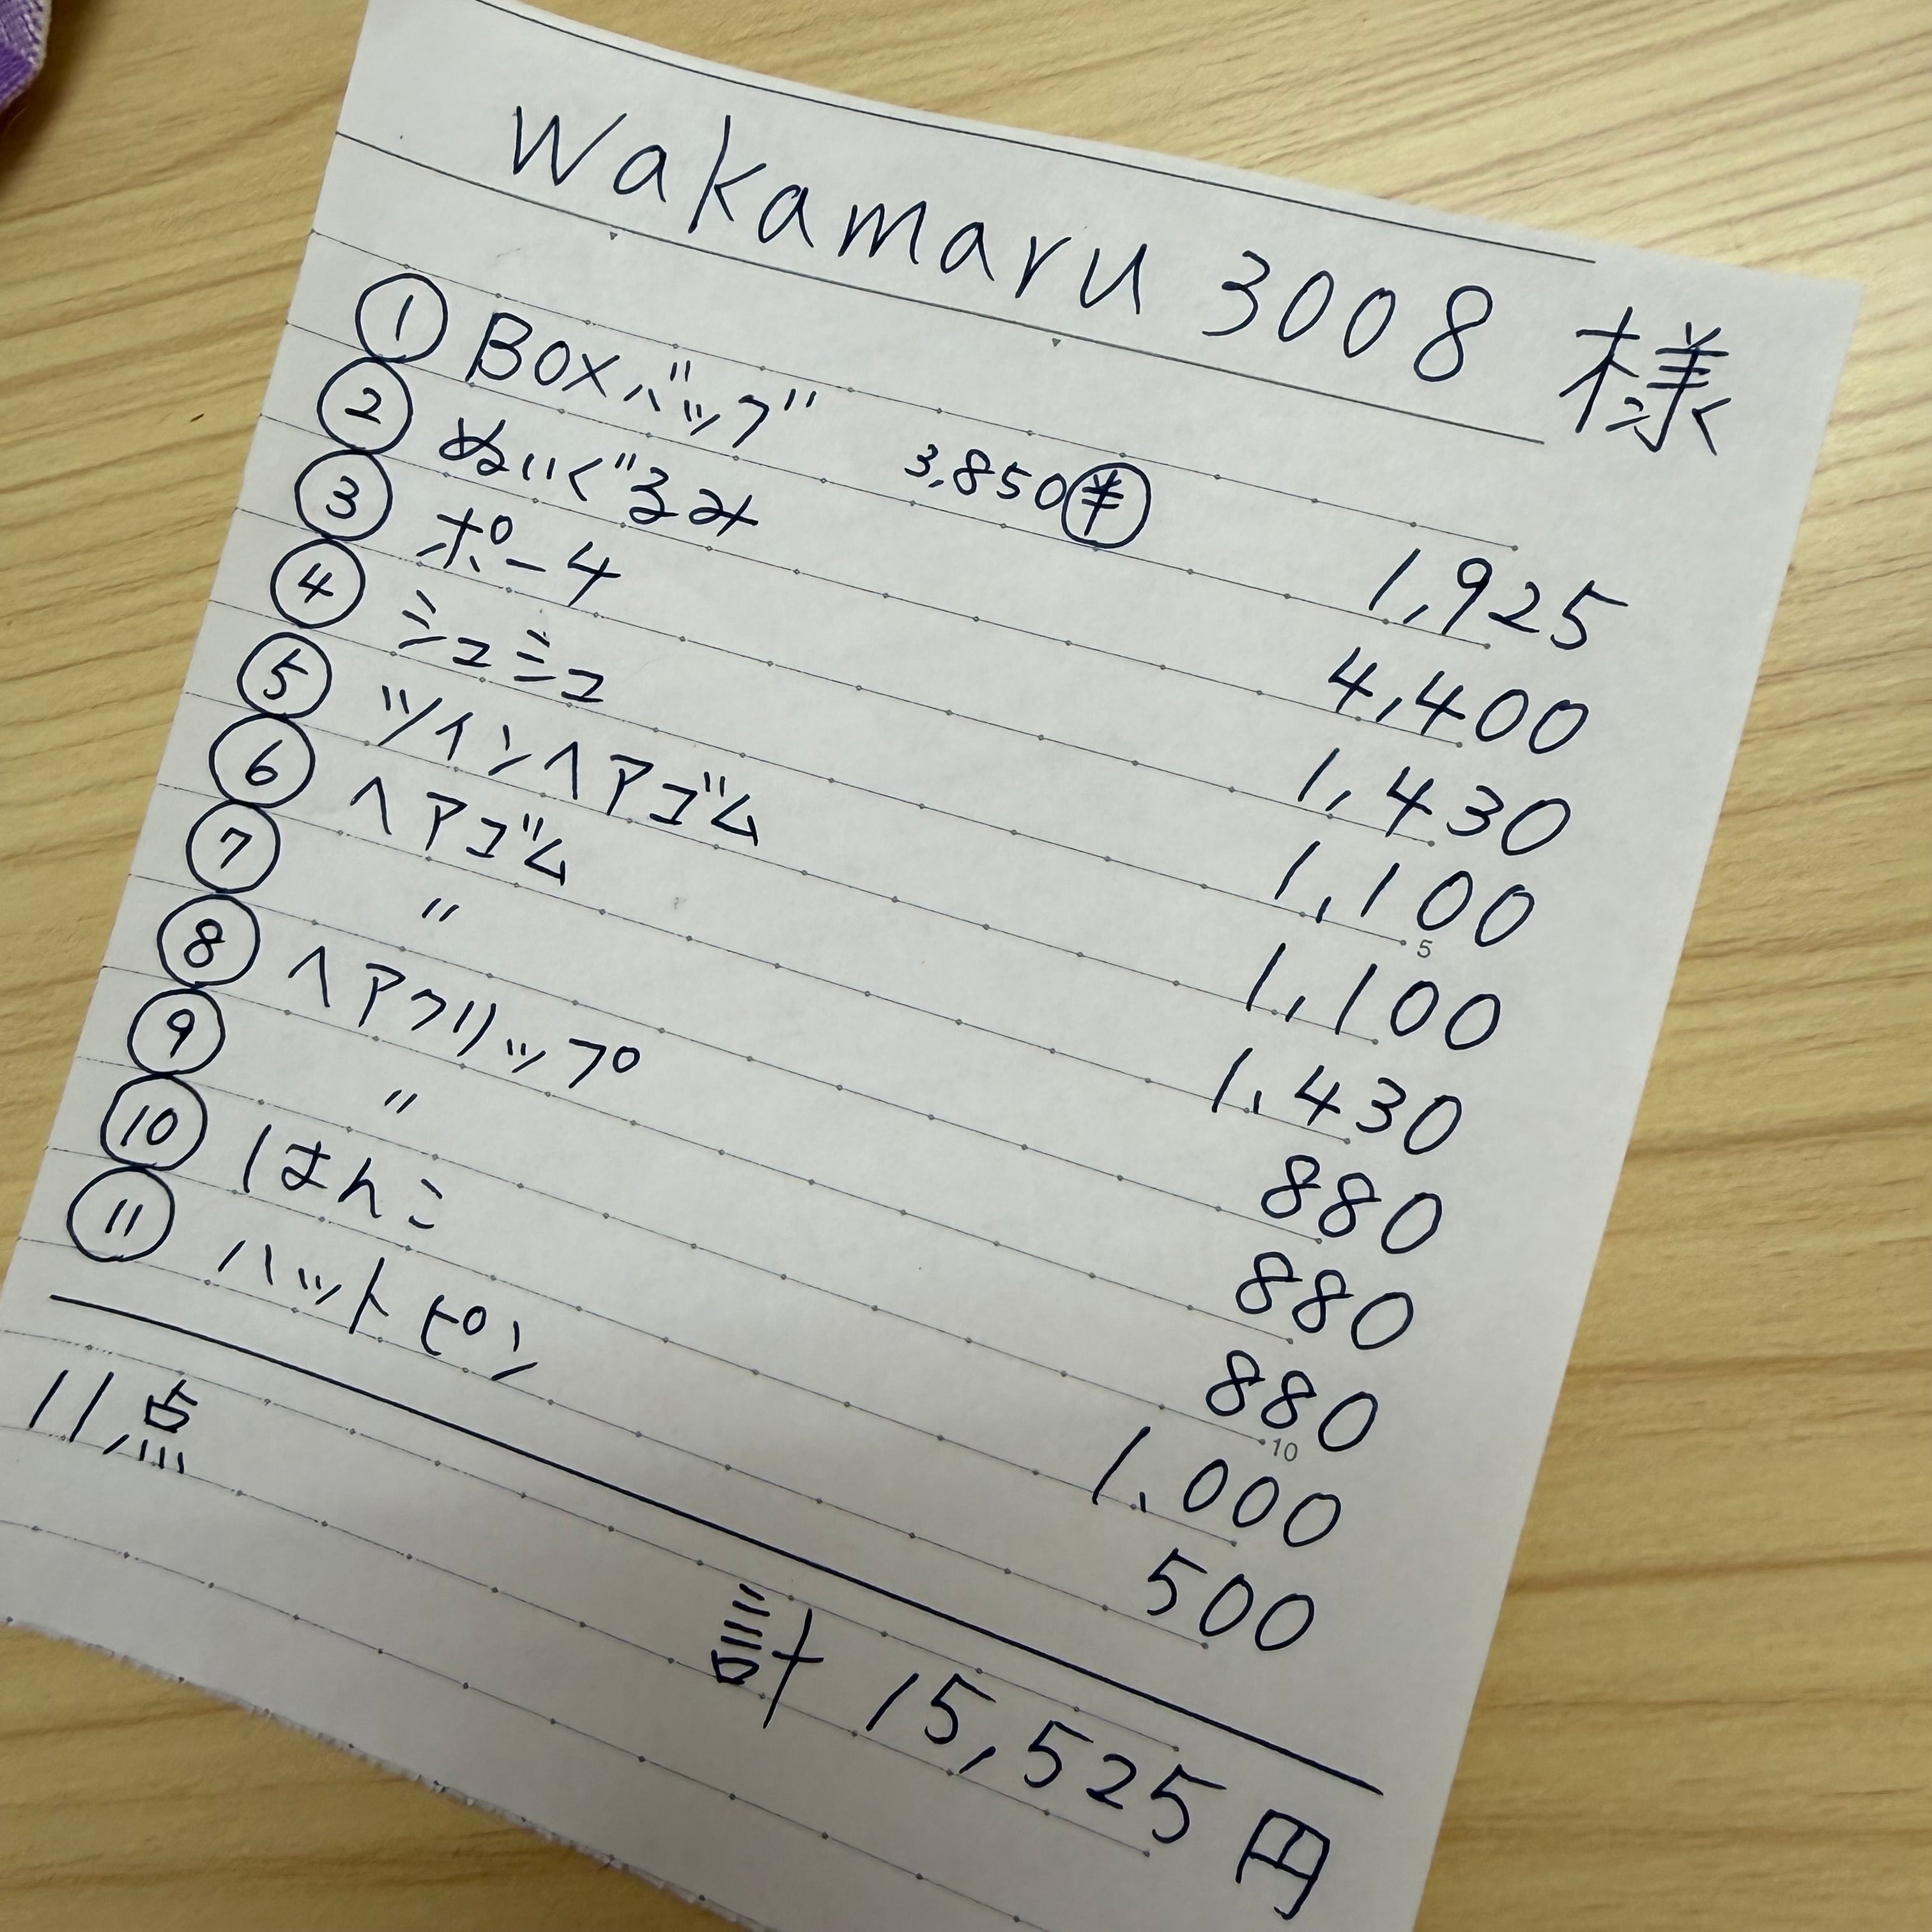 Wakamaru 3008 様
① BOXバッグ 3,850㊕ 1,925
② ぬいぐるみ 4,400
③ ポーチ 1,430
④ シュシュ 1,100
⑤ ツインヘアゴム 1,100
⑥ ヘアゴム 1,430
⑦ 〃 880
⑧ ヘアクリップ 880
⑨ 〃 880
⑩ はんこ 1,000
⑪ ハットピン 500
11点
計 15,525円
5
10